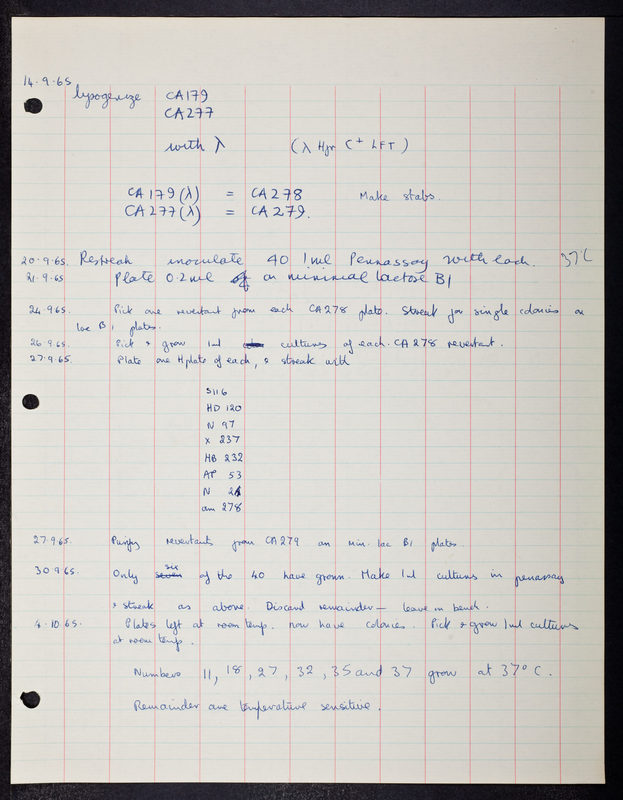 14.9.65
lysogenize CA179
CA277
with λ (λ Hfr C+ LFT)
CA179(λ) = CA278 Make stabs.
CA277(λ) = CA279.
20.9.65. Restreak inoculate 40 1ml Pennassay with each. 37°C
21.9.65 Plate 0.2ml on minimal lactose B1
24.9.65. Pick one revertant from each CA278 plate. Streak for single colonies on
lac B1 plates.
26.9.65. Pick & grow 1ml cultures of each CA278 revertant.
27.9.65. Plate one Hplate of each, & streak with
S116
HD 120
N 97
X 237
HB 232
AP 53
N 21
am 278
27.9.65. Purify revertants from CA279 on min. lac B1 plates.
30.9.65. Only seven six of the 40 have grown. Make 1ml cultures in penassay
& streak as above. Discard remainder — leave on bench.
4.10.65. Plates left at room temp. now have colonies. Pick & grow 1ml cultures
at room temp.
Numbers 11, 18, 27, 32, 35 and 37 grow at 37°C.
Remainder are temperature sensitive.